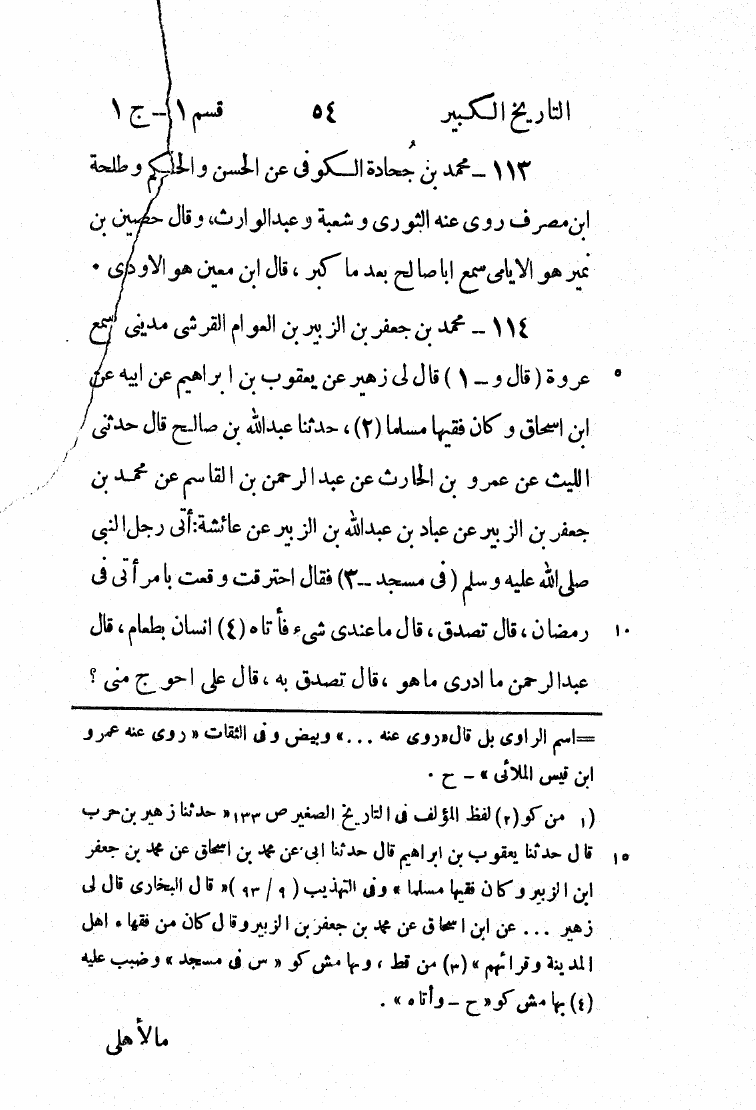 التاريخ الكبير ٥٤ قسم ١ – ج ١
١١٣ – محمد بن جُحادة الكوفى عن الحسن و الحكم و طلحة
ابن مصرف روى عنه الثورى و شعبة و عبدالوارث، وقال حصين بن
نمير هو الايامى سمع اباصالح بعد ما كبر ، قال ابن معين هو الاودى ٠
١١٤ – محمد بن جعفر بن الزبير بن العوام القرشى مدينى سمع
عروة ( قال و – ١ ) قال لى زهير عن يعقوب بن ابراهيم عن ابيه عن ٥
ابن اسحاق و كان فقيها مسلما (٢) ، حدثنا عبدالله بن صالح قال حدثنى
الليث عن عمرو بن الحارث عن عبد الرحمن بن القاسم عن محمد بن
جعفر بن الزبير عن عباد بن عبدالله بن الزبير عن عائشة: أتى رجل النبي
صلى الله عليه وسلم (فى مسجد – ٣) فقال احترقت وقعت بامرأتى فى
رمضان ، قال تصدق ، قال ماعندى شىء فأتاه (٤) انسان بطعام ، قال ١٠
عبدالرحمن ما ادرى ماهو ، قال تصدق به ، قال على احوج منى ؟
=اسم الراوى بل قال«روى عنه ...» وبيض وفى الثقات « روى عنه عمرو
ابن قيس الملائى » – ح ٠
(١ من كو (٢) لفظ المؤلف فى التاريخ الصغير ص ١٣٣« حدثنا زهير بن حرب
قال حدثنا يعقوب بن ابراهيم قال حدثنا ابى عن محمد بن اسحاق عن محمد بن جعفر ١٥
ابن الزبير وكان فقيها مسلما » وفى التهذيب ( ٩ / ٩٣ )« قال البخارى قال لى
زهير ... عن ابن اسحاق عن محمد بن جعفر بن الزبير وقال كان من فقهاء اهل
المدينة وقرائهم » (٣) من قط ، وبها مش كو « س فى مسجد » وضبب عليه
(٤) بها مش كو« ح – وأتاه » .
مالأهلى